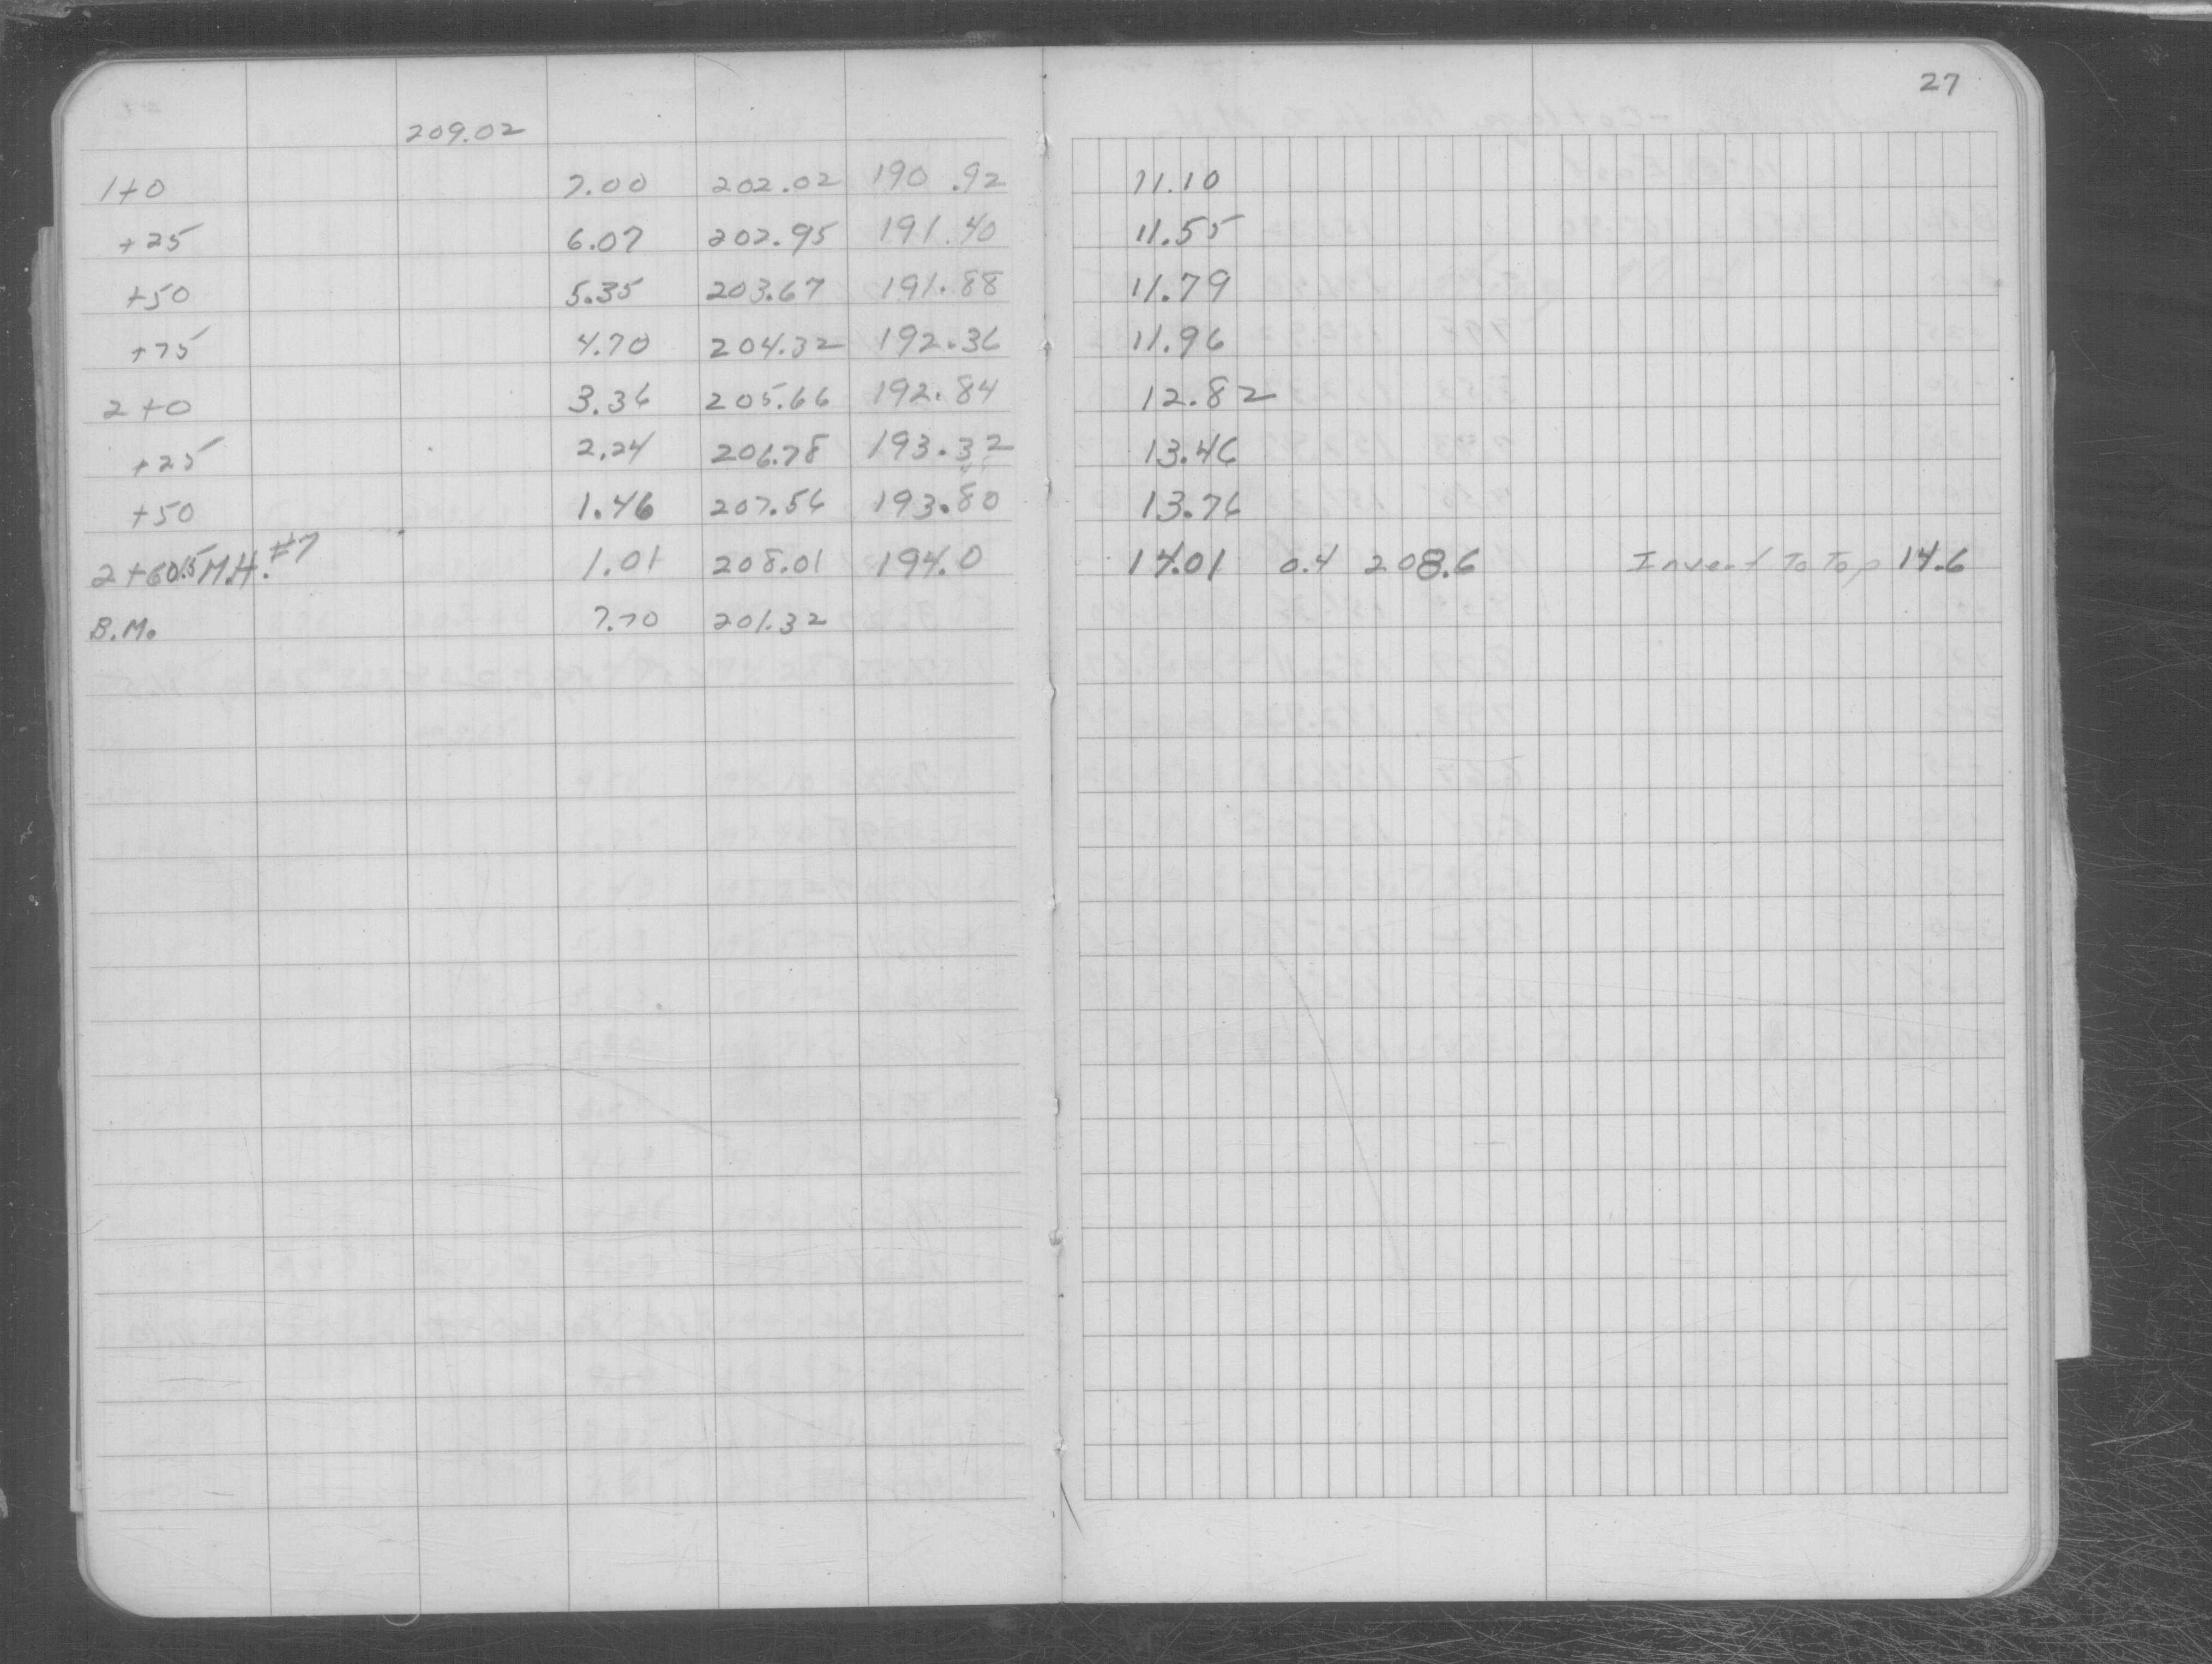 27
209.02
1+0 7.00 202.02 190.92 11.10
+25 6.07 202.95 191.40 11.55
+50 5.35 203.67 191.88 11.79
+75 4.70 204.32 192.36 11.96
2+0 3.36 205.66 192.84 12.82
+25 2.24 206.78 193.32 13.46
+50 1.46 207.56 193.80 13.76
2+60.5 M.H. #7 1.01 208.01 194.0 14.01 0.4 208.6 Invert To Top 14.6
B.M. 7.70 201.32